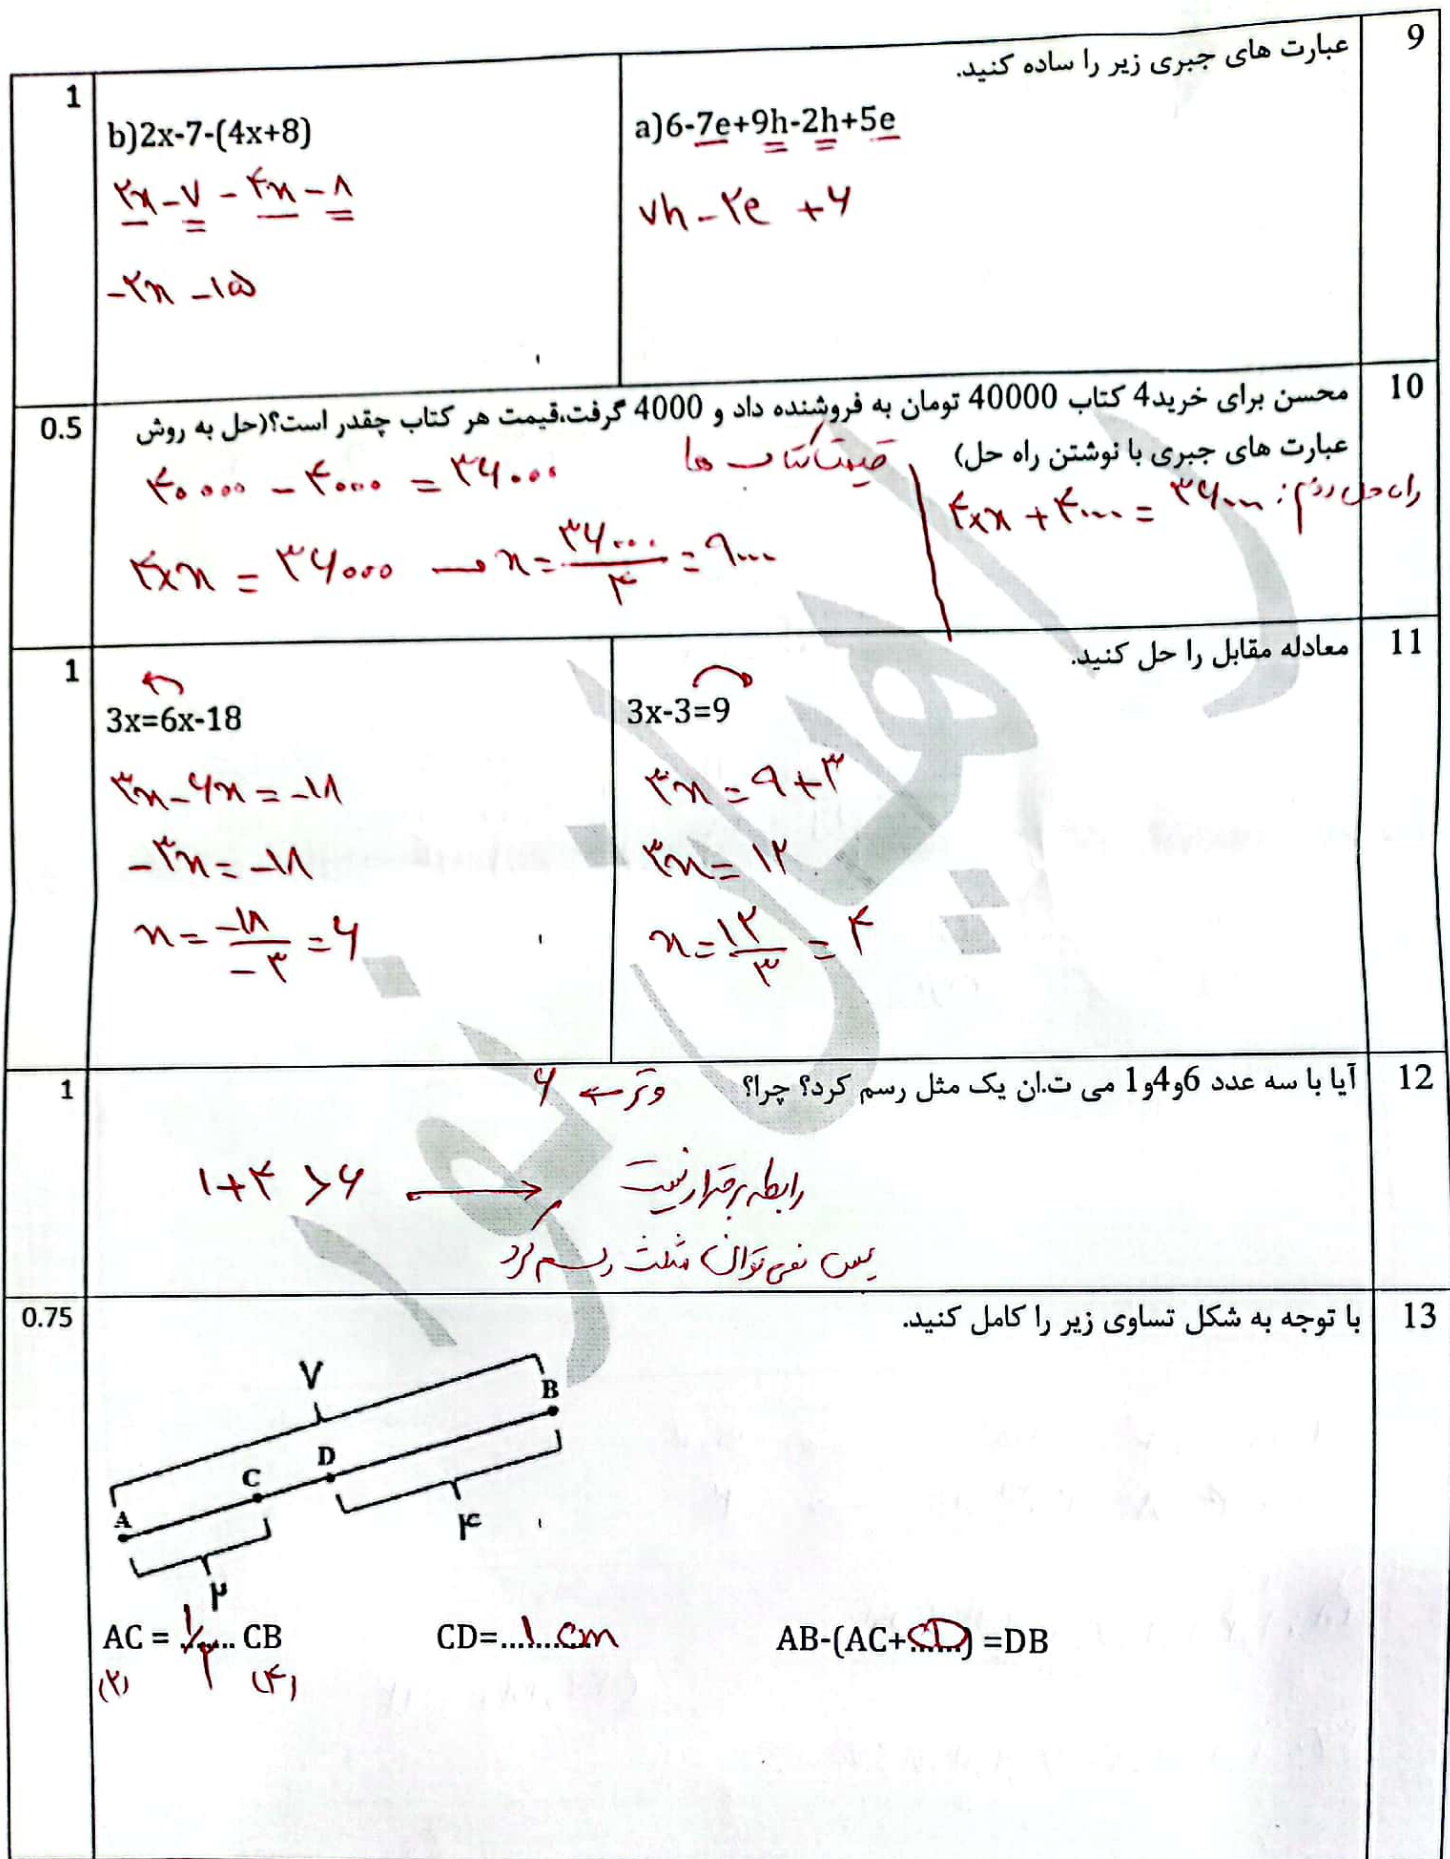 9
عبارت های جبری زیر را ساده کنید.
a)6-7e+9h-2h+5e
۷h - ۲e + ۶
1
b)2x-7-(4x+8)
۲x - ۷ - ۴x - ۸
-۲x - ۱۵
10
محسن برای خرید4 کتاب 40000 تومان به فروشنده داد و 4000 گرفت،قیمت هر کتاب چقدر است؟(حل به روش
0.5
عبارت های جبری با نوشتن راه حل)
قیمت کتاب ها
۴۰۰۰۰ - ۴۰۰۰ = ۳۶۰۰۰
۴×x = ۳۶۰۰۰ → x = ۳۶۰۰۰/۴ = ۹۰۰۰
راه حل دوم: ۴×x + ۴۰۰۰ = ۳۶۰۰۰
11
معادله مقابل را حل کنید.
3x-3=9
۳x = ۹+۳
۳x = ۱۲
x = ۱۲/۳ = ۴
1
3x=6x-18
۳x - ۶x = -۱۸
-۳x = -۱۸
x = -۱۸/-۳ = ۶
12
آیا با سه عدد 6و4و1 می ت.ان یک مثل رسم کرد؟ چرا؟
وتر ← ۶
1
۱+۴ > ۶ → رابطه برقرار نیست
پس نمی توان مثلث رسم کرد
13
با توجه به شکل تساوی زیر را کامل کنید.
0.75
۷
B
D
C
A
۴
۲
AC = ۱/۲ CB
(۲) (۴)
CD=...۱ cm
AB-(AC+CD) =DB
راهیان نور